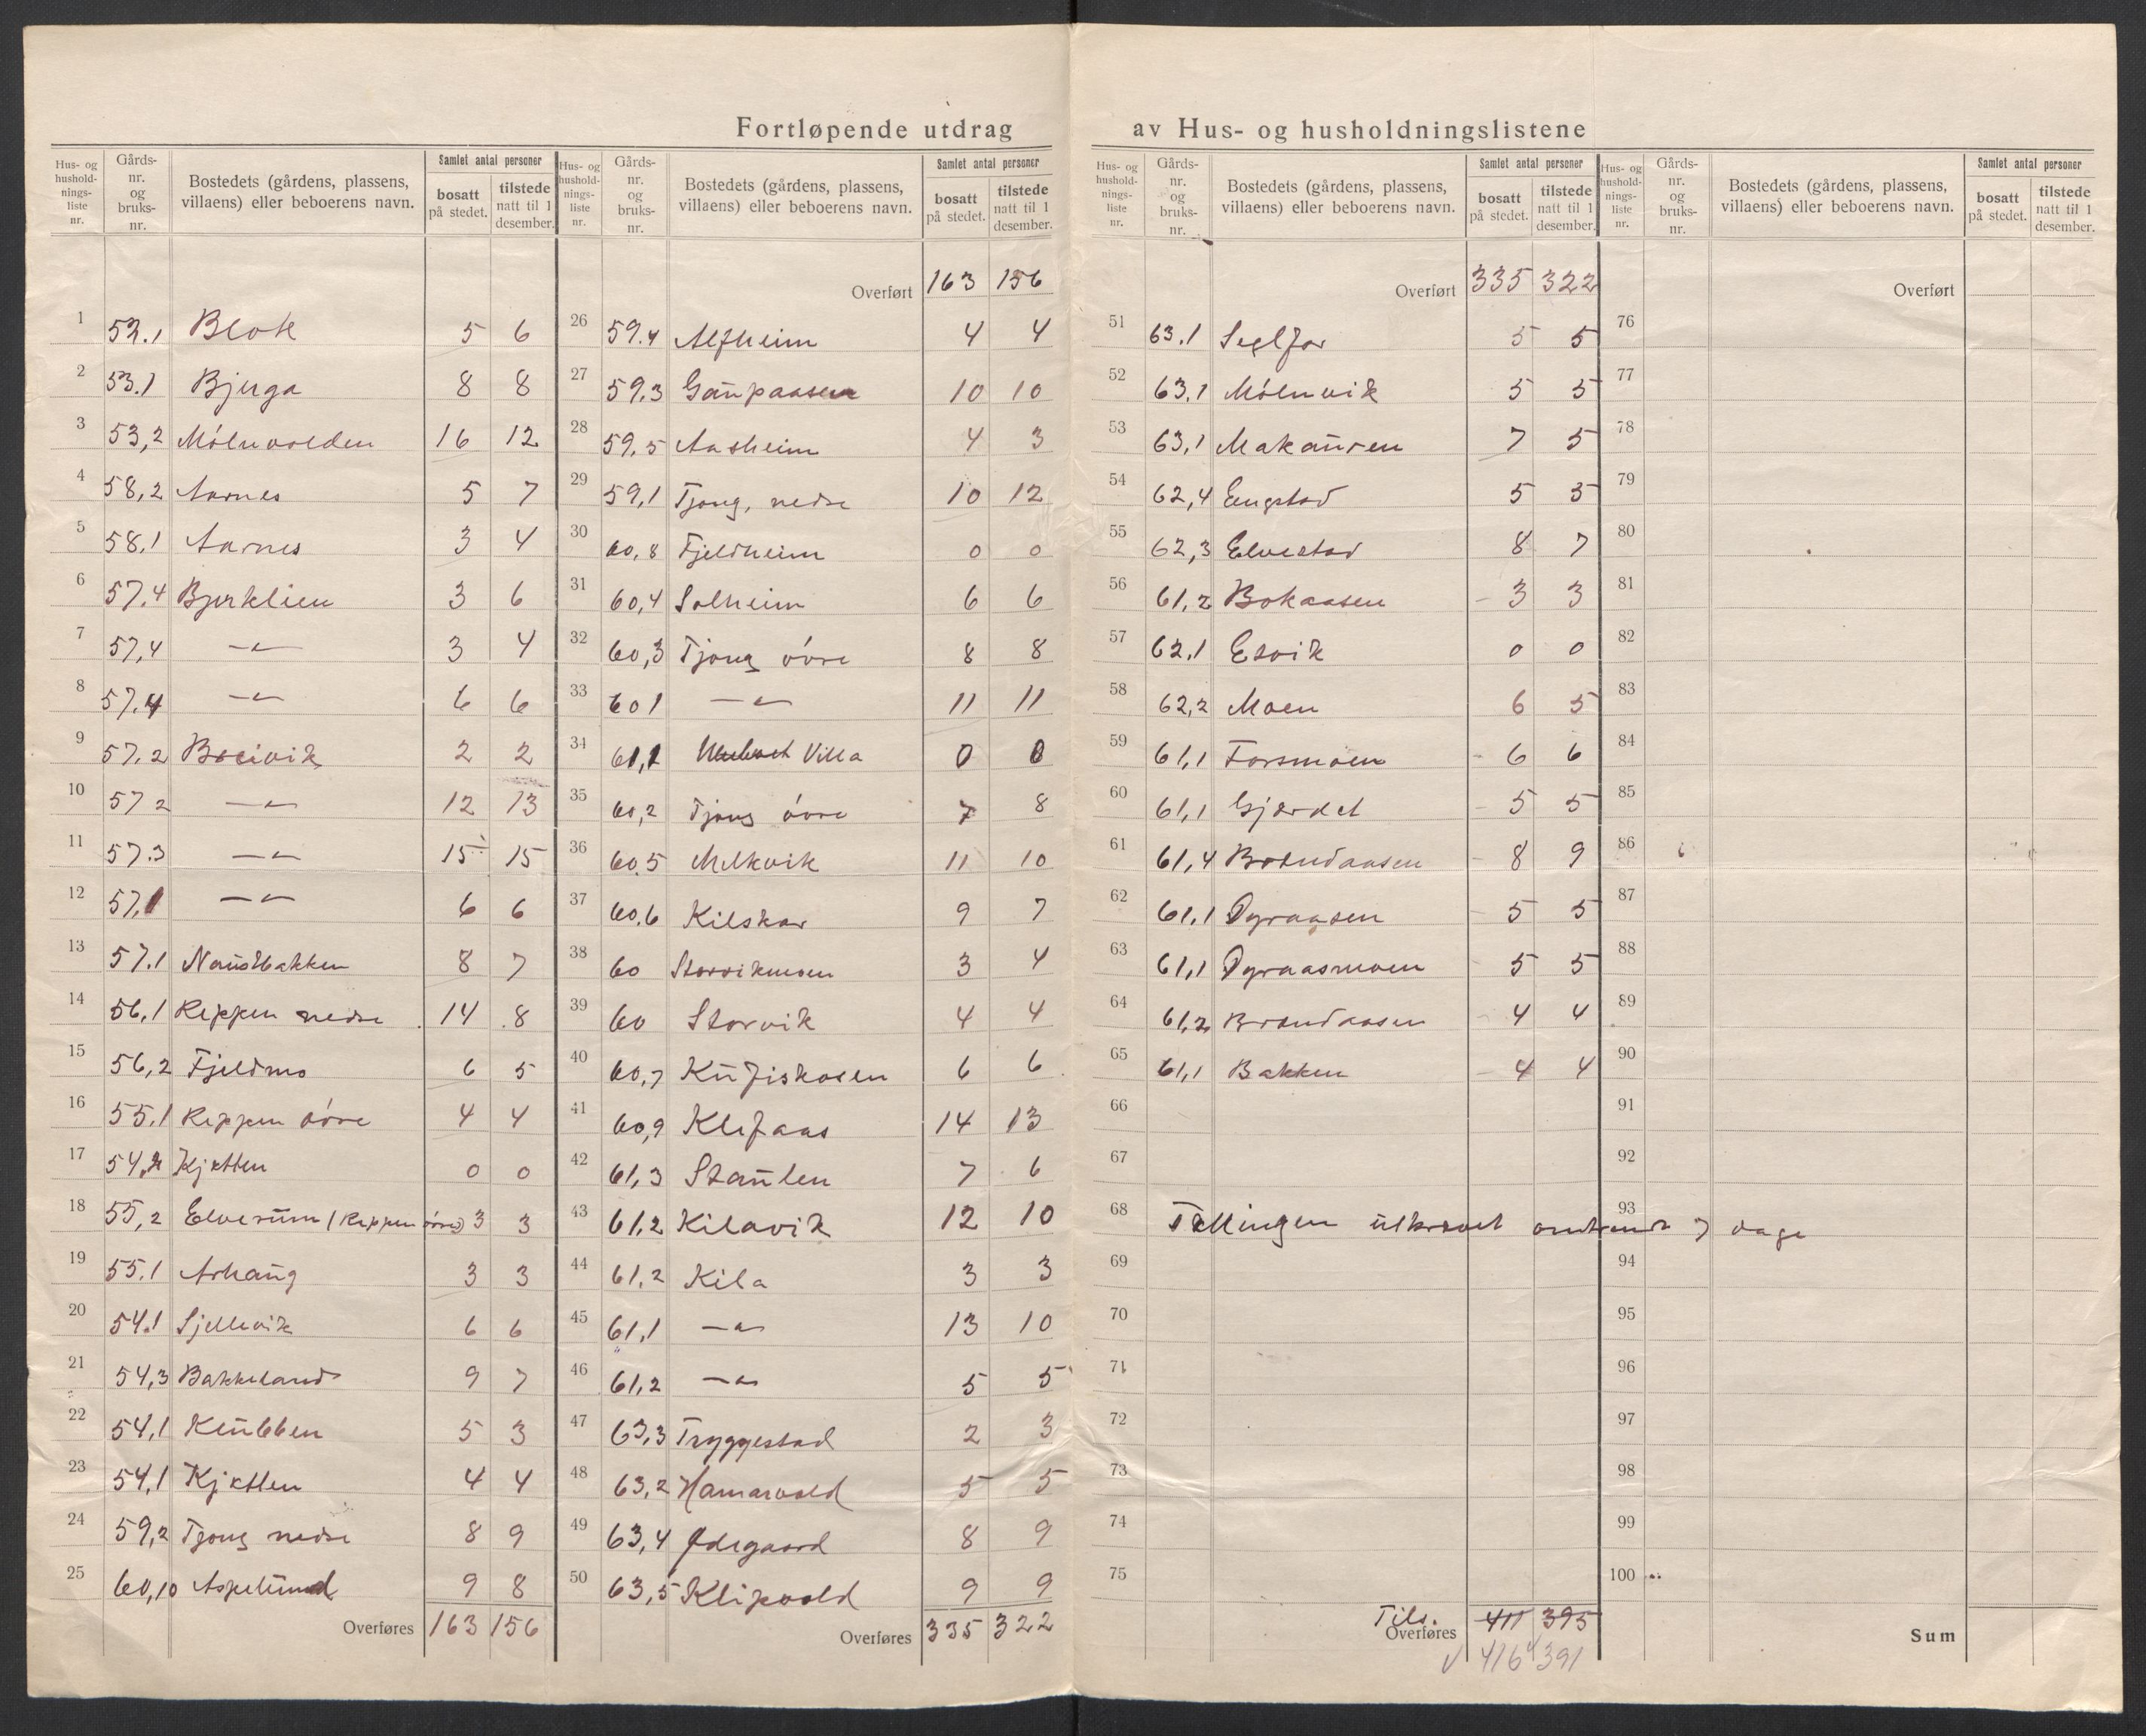 Fortløpende utdrag av Hus- og husholdningslistene
Hus- og husholdnings-liste nr. | Gårds-nr. og bruks-nr. | Bostedets (gårdens, plassens, villaens) eller beboerens navn. | Samlet antal personer | bosatt på stedet. | tilstede natt til 1 desember.
1 52.1 Blok 5 6
2 53.1 Bjerga 8 8
3 53,2 Mólnvolden 16 12
4 58,2 Aarnes 5 7
5 58.1 Aarnes 3 4
6 57.4 Bjerklien 3 6
7 57,4 —〃— 3 4
8 57.4 —〃— 6 6
9 57.2 Breivik 2 2
10 57 2 —〃— 12 13
11 57.3 —〃— 15 15
12 57,1 —〃— 6 6
13 57.1 Naustbakken 8 7
14 56,1 Reppen nedre 14 8
15 56,2 Fjeldmo 6 5
16 55.1 Reppen óvre 4 4
17 54,2 Kjetten 0 0
18 55,2 Elverum (Reppen óvre) 3 3
19 55.1 Arhaug 3 3
20 54.1 Sjellevik 6 6
21 54,3 Bakkeland 9 7
22 54,1 Klubben 5 3
23 54,1 Kjetten 4 4
24 59,2 Tjong nedre 8 9
25 60,10 Aspelund 9 8
Overføres 163 156
Hus- og husholdnings-liste nr. | Gårds-nr. og bruks-nr. | Bostedets (gårdens, plassens, villaens) eller beboerens navn. | Samlet antal personer | bosatt på stedet. | tilstede natt til 1 desember.
Overført 163 156
26 59.4 Alfheim 4 4
27 59,3 Gaupaasen 10 10
28 59,5 Aasheim 4 3
29 59,1 Tjong, nedre 10 12
30 60,8 Fjeldheim 0 0
31 60,4 Solheim 6 6
32 60,3 Tjong óvre 8 8
33 60 1 —〃— 11 11
34 61,1 Villa 0 0
35 60,2 Tjong óvre 7 8
36 60.5 Melkvik 11 10
37 60.6 Kilskar 9 7
38 60 Storvikmoen 3 4
39 60 Storvik 4 4
40 60,7 Kufiskosen 6 6
41 60,9 Klefaas 14 13
42 61,3 Staulen 7 6
43 61,2 Kilavik 12 10
44 61,2 Kila 3 3
45 61,1 —〃— 13 10
46 61,2 —〃— 5 5
47 63,3 Tryggestad 2 3
48 63,2 Hamarvold 5 5
49 63,4 Ødegaard 8 9
50 63,5 Klipvold 9 9
Overføres 335 322
Hus- og husholdnings-liste nr. | Gårds-nr. og bruks-nr. | Bostedets (gårdens, plassens, villaens) eller beboerens navn. | Samlet antal personer | bosatt på stedet. | tilstede natt til 1 desember.
Overført 335 322
51 63.1 Seglfor 5 5
52 63,1 Mólnvik 5 5
53 63,1 Makauren 7 5
54 62,4 Engstad 5 5
55 62,3 Elvestad 8 7
56 61,2 Bokaasen 3 3
57 62.1 Esvik 0 0
58 62,2 Moen 6 5
59 61,1 Forsmoen 6 6
60 61,1 Gjerdet 5 5
61 61,4 Brendaasen 8 9
62 61.1 Dyraasen 5 5
63 61,1 Dyraasmoen 5 5
64 61,2 Brendaasen 4 4
65 61,1 Bakken 4 4
66
67
68 Tellingen utkrævet omtrent 7 dage
69
70
71
72
73
74
75
Tils. 411 395
Overføres
416 391
Hus- og husholdnings-liste nr. | Gårds-nr. og bruks-nr. | Bostedets (gårdens, plassens, villaens) eller beboerens navn. | Samlet antal personer | bosatt på stedet. | tilstede natt til 1 desember.
Overført
76
77
78
79
80
81
82
83
84
85
86
87
88
89
90
91
92
93
94
95
96
97
98
99
100
Sum